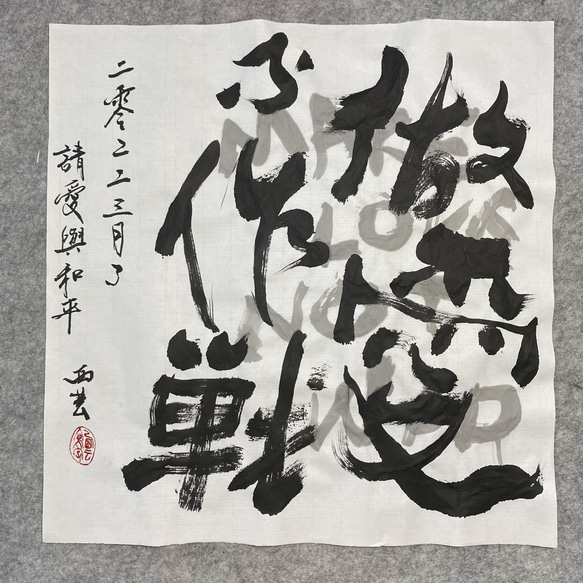 做愛
不作戰
MAKE
LOVE
NOT
WAR
二零二二三月
請愛與和平